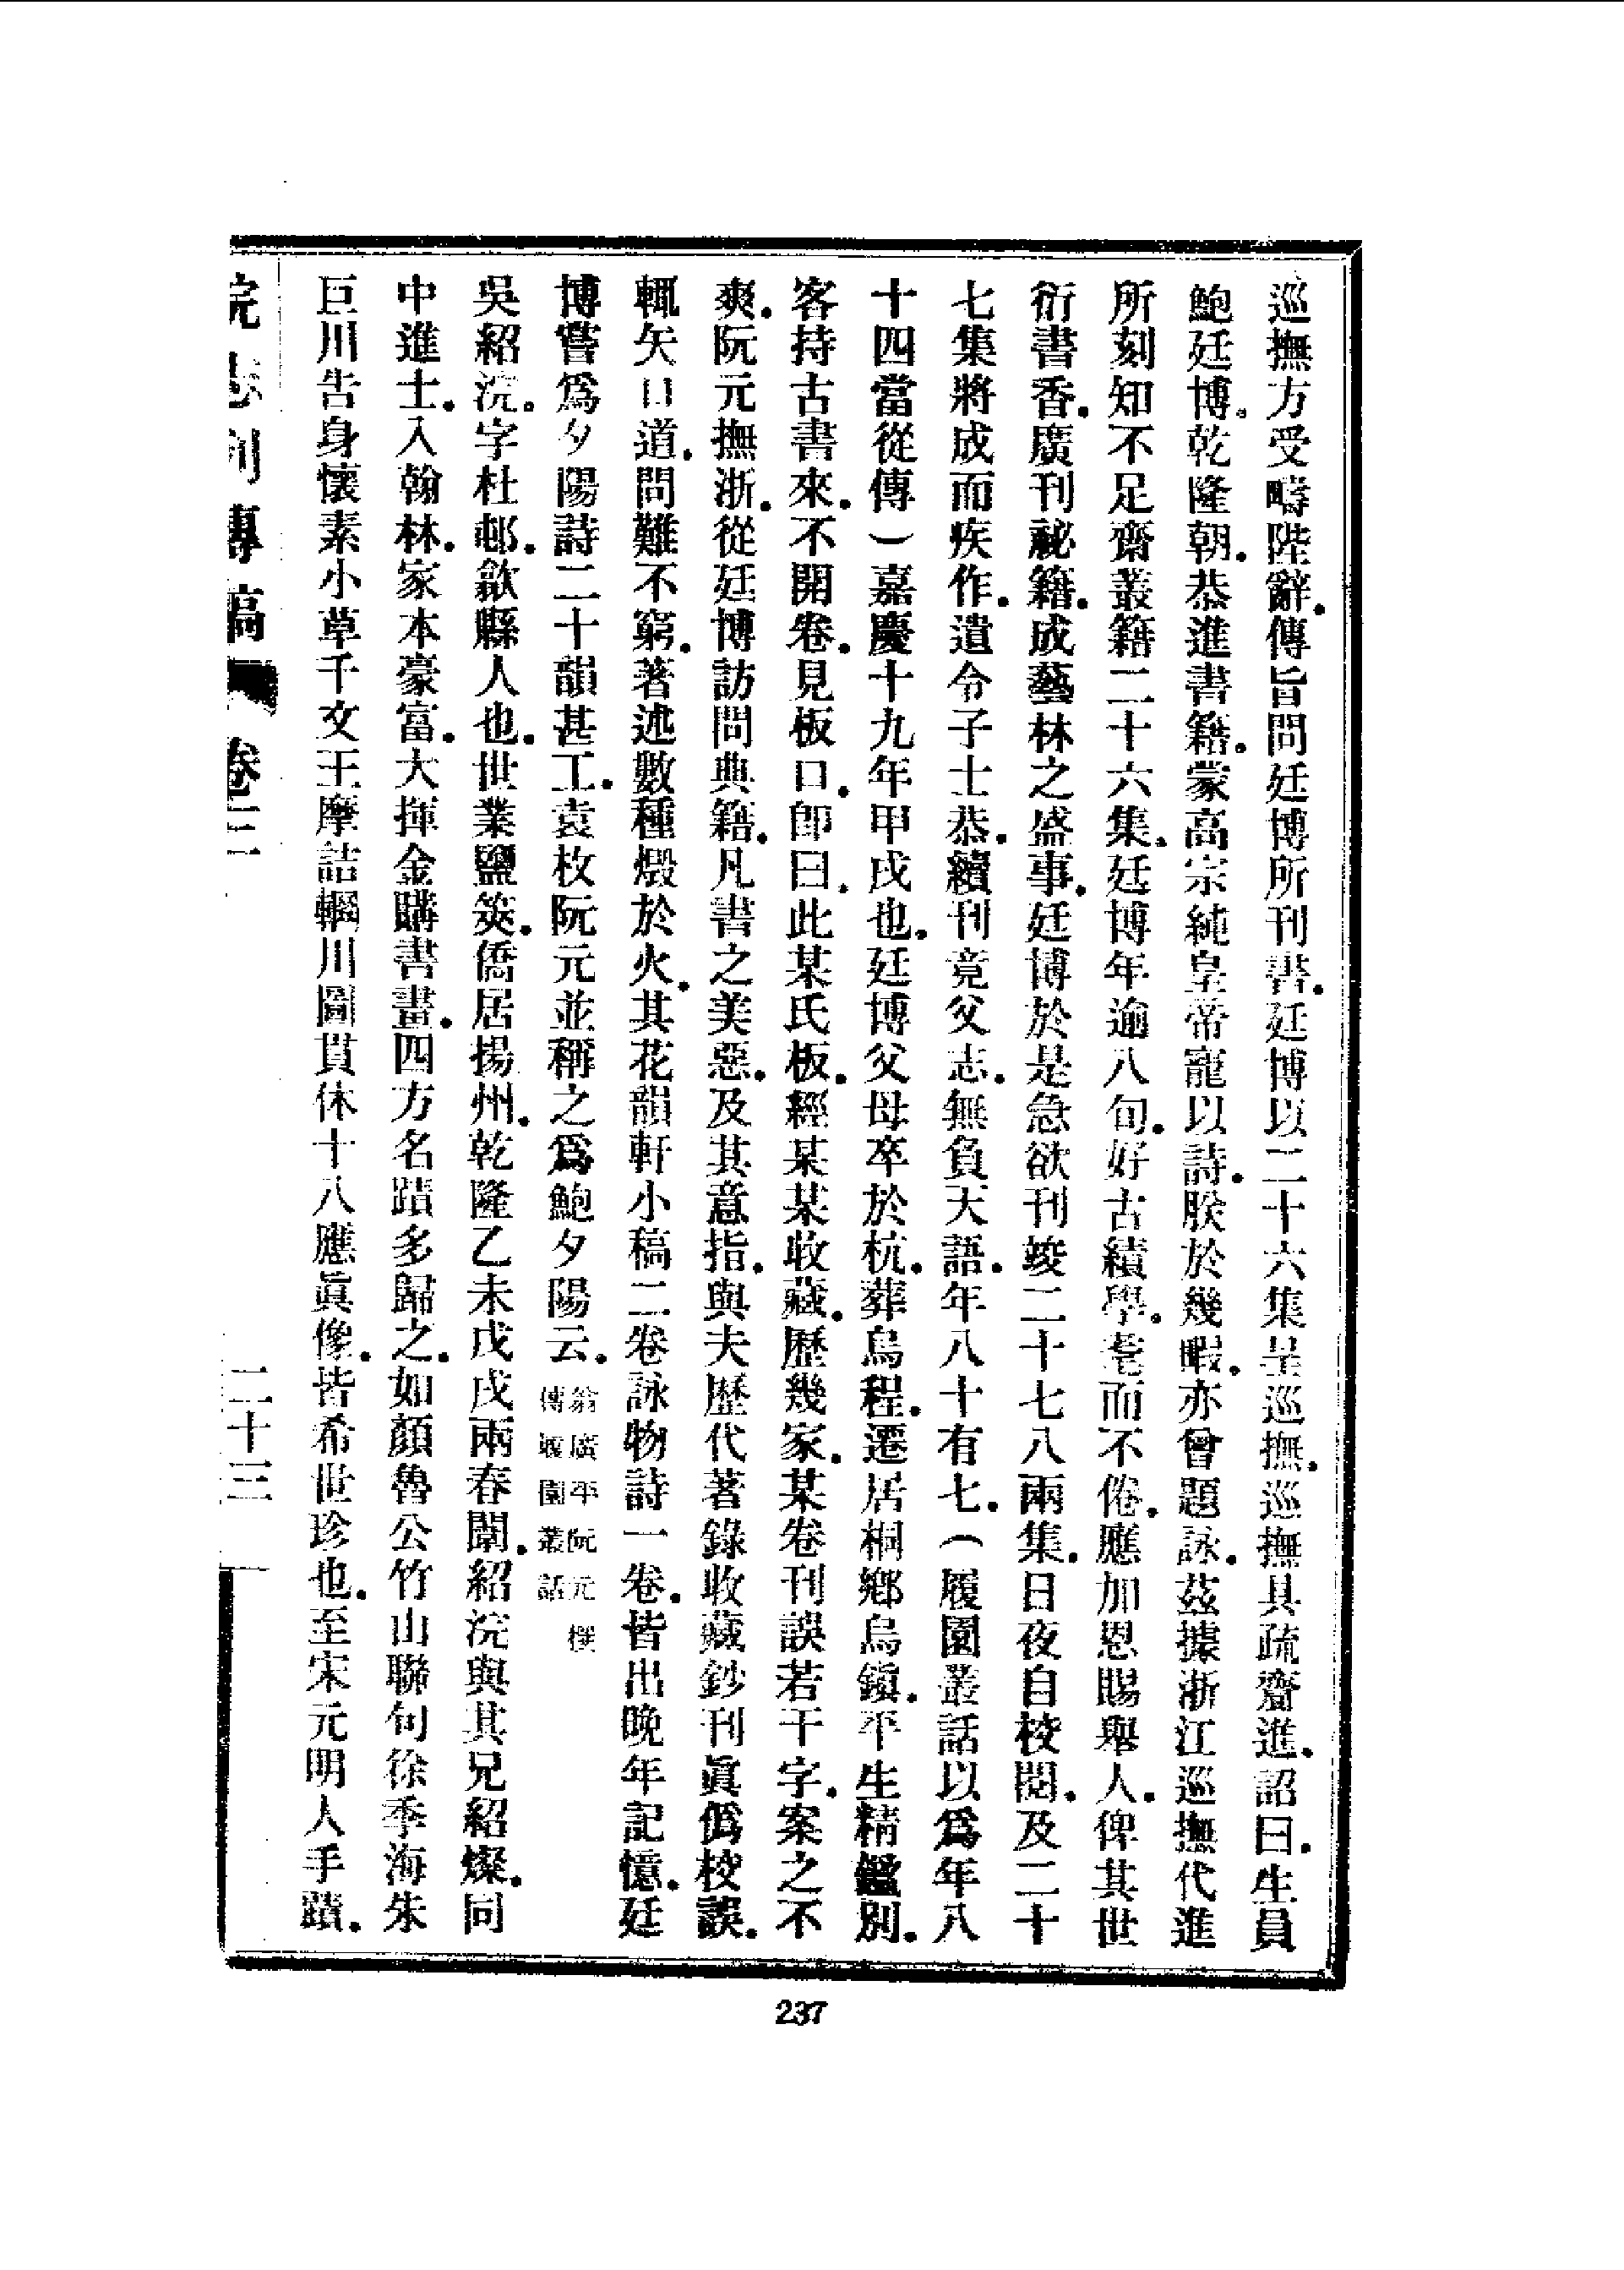 巡撫方受疇陛辭.傳旨問廷博所刊書.廷博以二十六集呈巡撫.巡撫具疏齎進.詔曰.生員
鮑廷博.乾隆朝.恭進書籍.蒙高宗純皇帝寵以詩.朕於幾暇.亦曾題詠.茲據浙江巡撫代進
所刻知不足齋叢籍二十六集.廷博年逾八旬.好古績學.耄而不倦.應加恩賜舉人.俾其世
衍書香.廣刊祕籍.成藝林之盛事.廷博於是急欲刊竣二十七八兩集.日夜自校閱.及二十
七集將成而疾作.遺令子士恭.續刊竟父志.無負天語.年八十有七.(履園叢話以爲年八
十四當從傳)嘉慶十九年甲戌也.廷博父母卒於杭.葬烏程.遷居桐鄉烏鎭.平生精鑑別.
客持古書來.不開卷.見板口.卽曰.此某氏板.經某某收藏.歷幾家.某卷刊誤若干字.案之不
爽.阮元撫浙.從廷博訪問典籍.凡書之美惡.及其意指.與夫歷代著錄收藏鈔刊眞僞校誤.
輒矢口道.問難不窮.著述數種燬於火.其花韻軒小稿二卷詠物詩一卷.皆出晚年記憶.廷
博嘗爲夕陽詩二十韻甚工.袁枚阮元並稱之爲鮑夕陽云.
翁廣平阮元撰
傳履園叢話
吳紹浣.字杜邨.歙縣人也.世業鹽筴.僑居揚州.乾隆乙未戊戌兩春闈.紹浣與其兄紹燦.同
中進士.入翰林.家本豪富.大揮金購書畫.四方名蹟多歸之.如顏魯公竹山聯句徐季海朱
巨川告身懷素小草千文王摩詰輞川圖貫休十八應眞像.皆希世珍也.至宋元明人手蹟.
皖志列傳稿 卷三 二十三
237